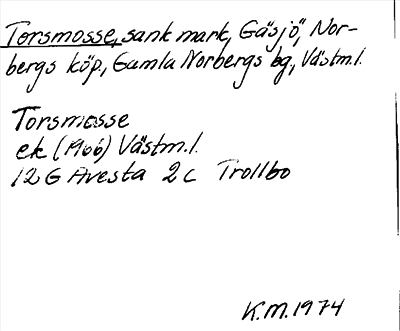 Torsmosse, sank mark, Gäsjö, Nor-
bergs köp, Gamla Norbergs bg, Västm.l.
Torsmosse
ek (1966) Västm.l.
12G Avesta 2c Trollbo
K.M.1974